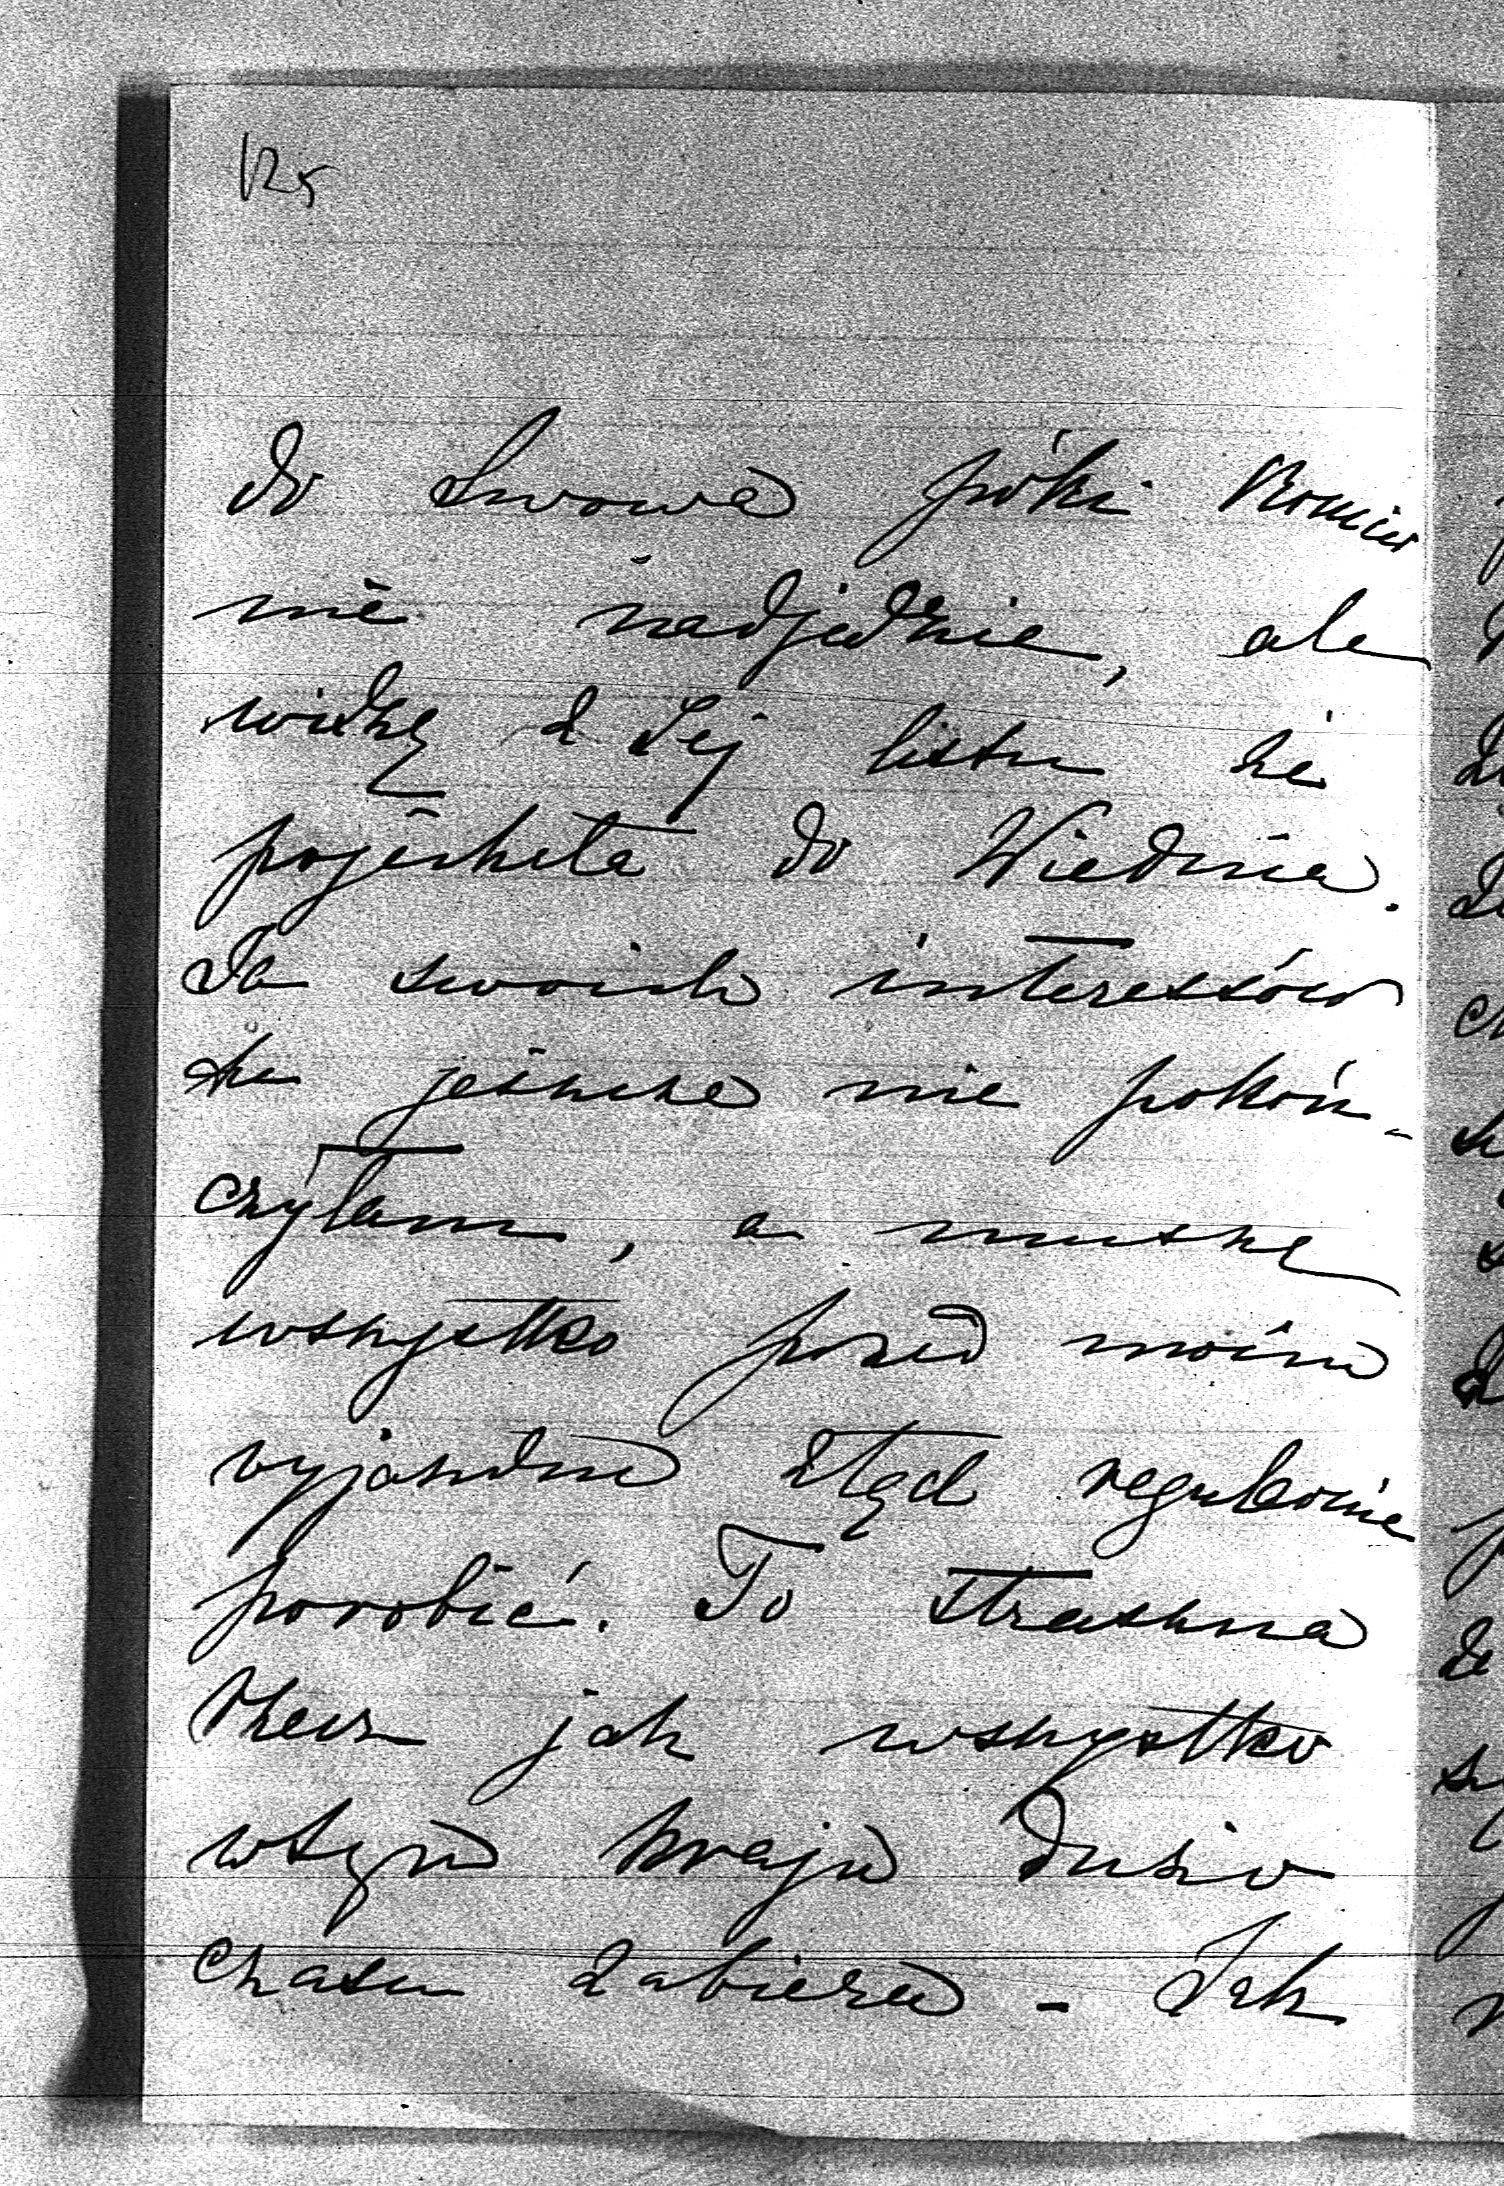 125
do Lwowa póki Roniu
nie nadjedzie, ale
widzę z Jej listu że
pojechała do Wiednia.
Ja swoich interessów
tu jeszcze nie pokoń-
czyłam, a muszę
wszystko przed moim
wyjazdem ztąd regularnie
porobić. To straszna
rzecz jak wszystko
w tym kraju dużo
czasu zabiera - Jak